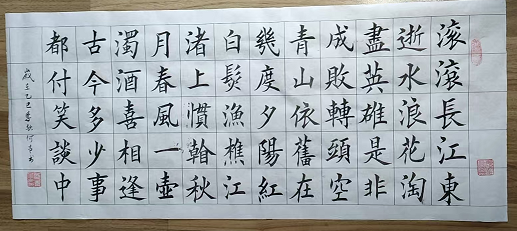 滾滾長江東
逝水浪花淘
盡英雄是非
成敗轉頭空
青山依舊在
幾度夕陽紅
白髮漁樵江
渚上慣看秋
月春風一壺
濁酒喜相逢
古今多少事
都付笑談中
歲在乙巳